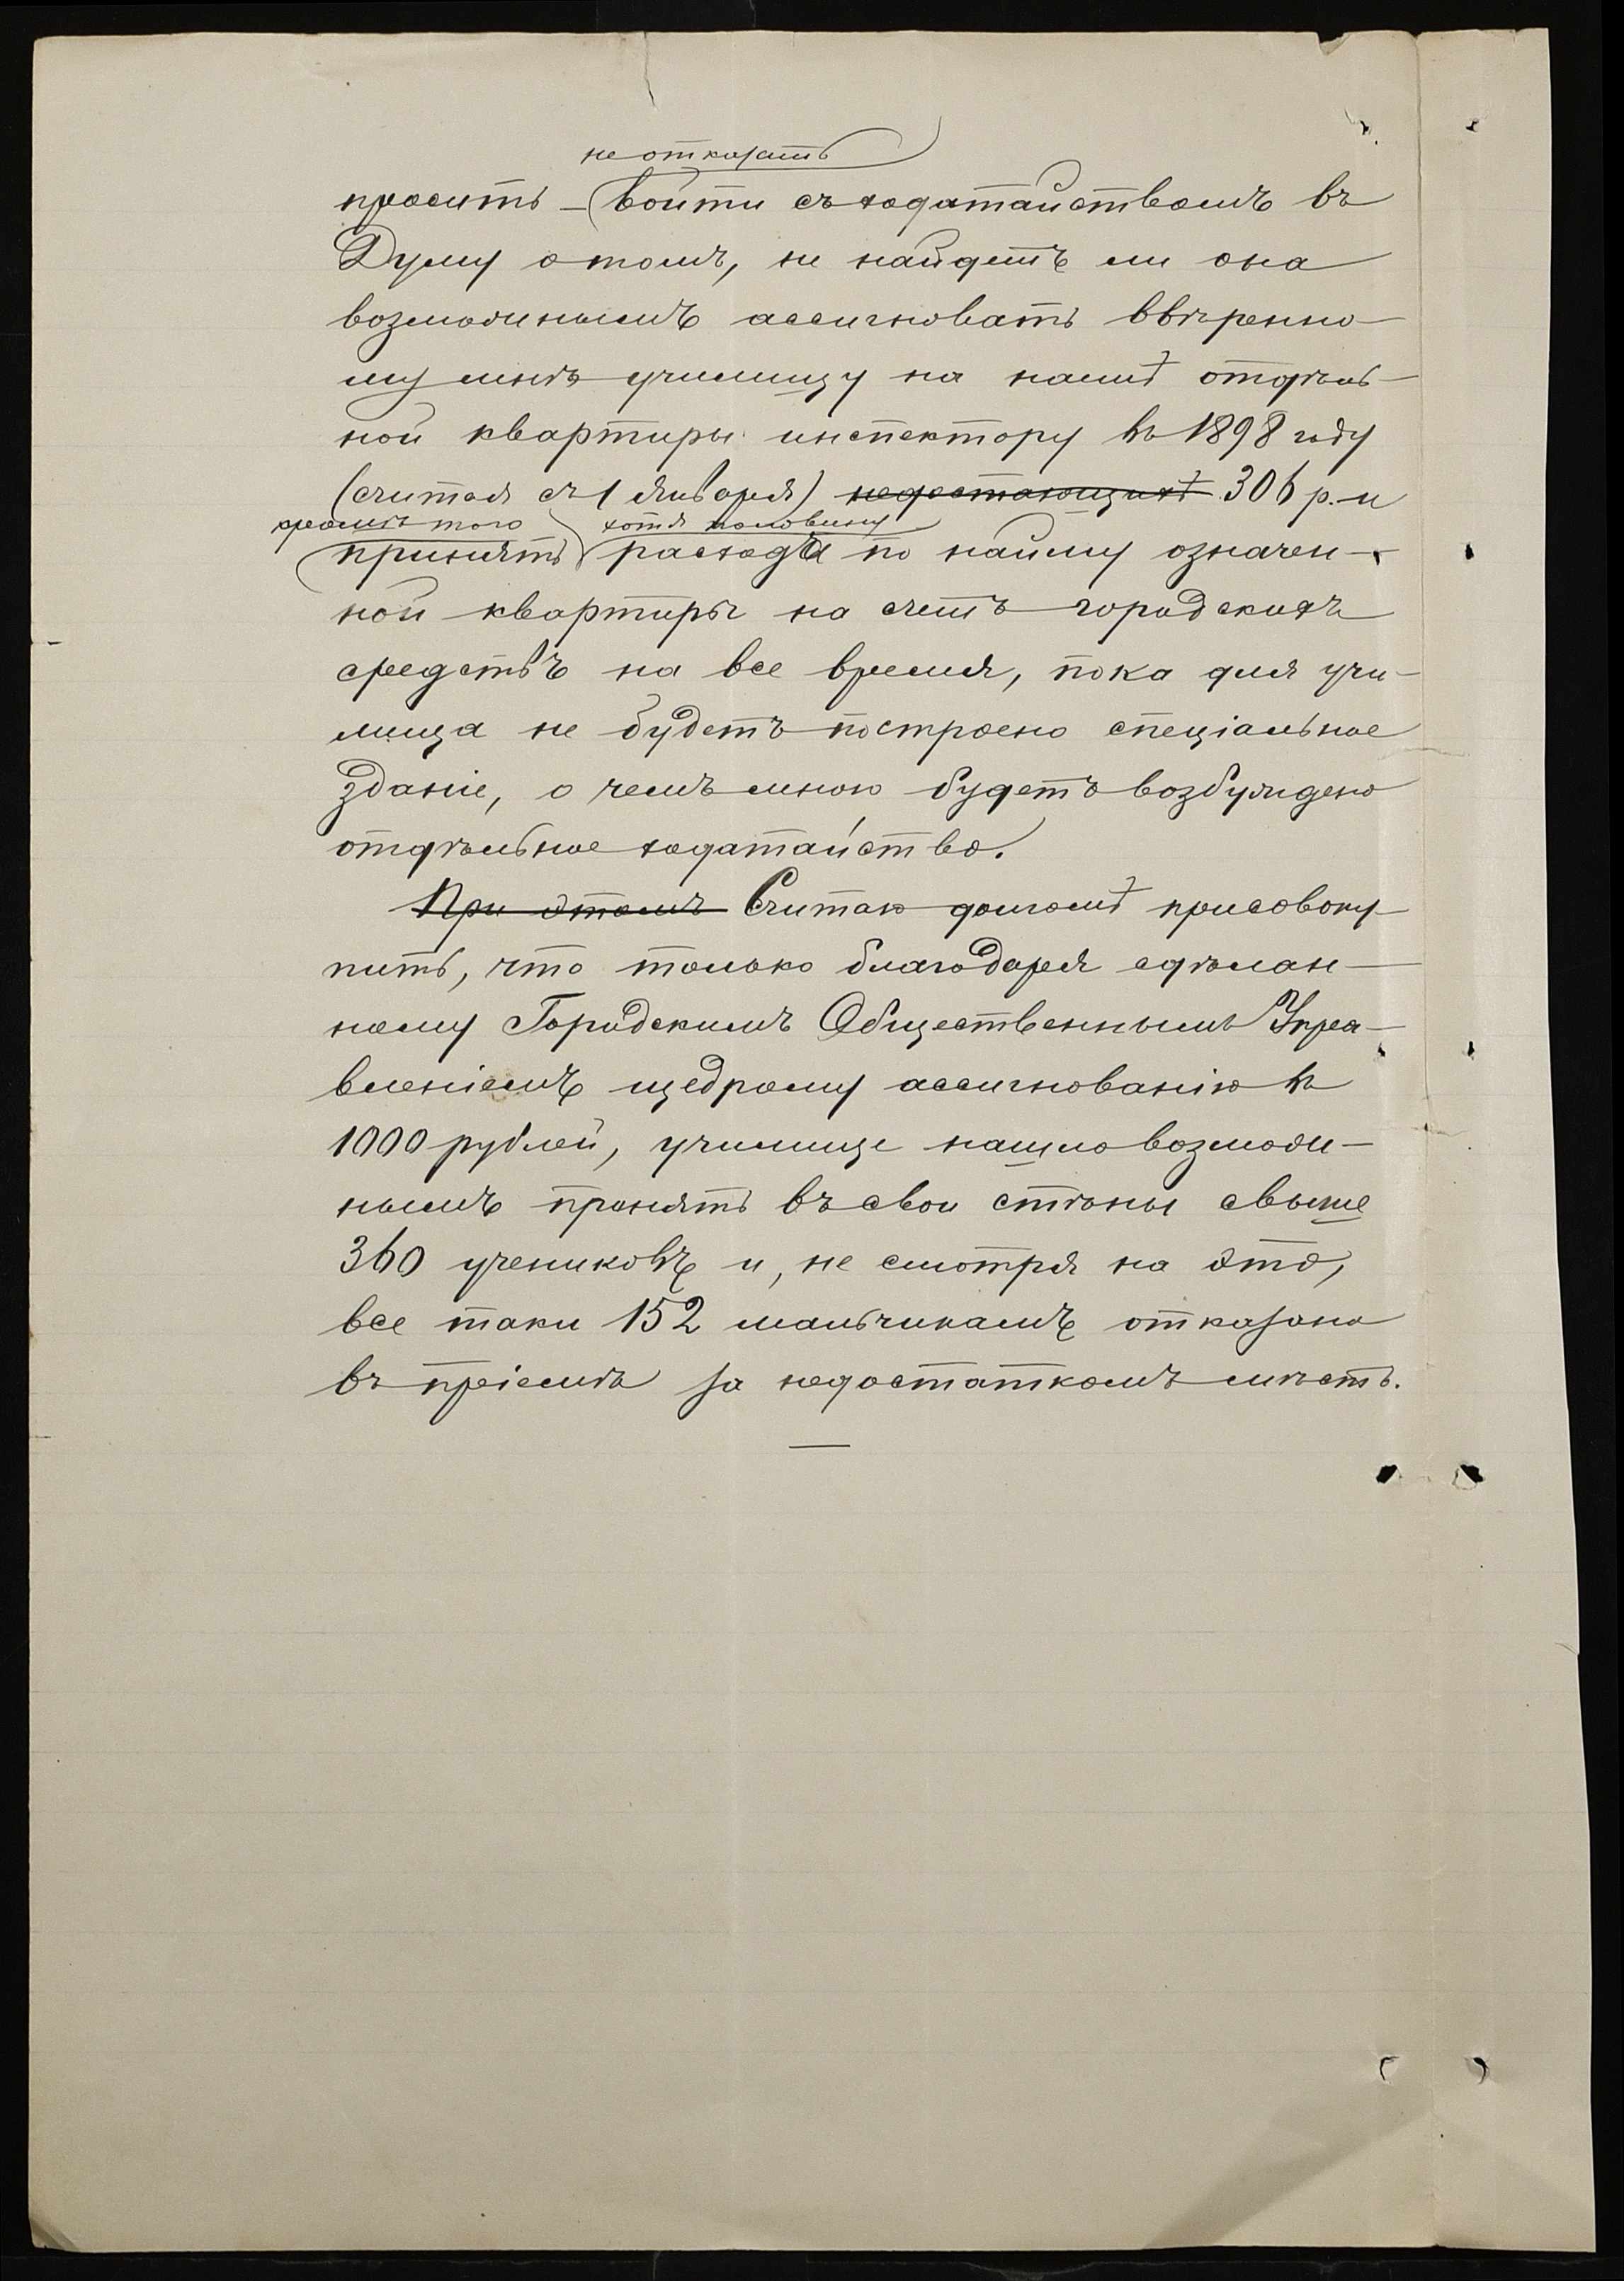 не отказать
просить – войти съ ходатайствомъ въ
Думу о томъ, не найдетъ ли она
возможнымъ ассигновать ввѣренно-
му мнѣ училищу на наемъ отдѣль-
ной квартиры инспектору въ 1898 году
(считая съ 1 января) недостающихъ 306 р. и
кромѣ того хотя половину
принять расхода по найму означен-
ной квартиры на счетъ городскихъ
средствъ на все время, пока для учи-
лища не будетъ построено спеціальное
зданіе, о чемъ мною будетъ возбуждено
отдѣльное ходатайство.
При этомъ Считаю долгомъ присовоку-
пить, что только благодаря сдѣлан-
ному Городскимъ Общественнымъ Упра-
вленіемъ щедрому ассигнованію въ
1000 рублей, училище нашло возмож-
нымъ принять въ свои стѣны свыше
360 учениковъ и, не смотря на это,
все таки 152 мальчикамъ отказано
въ пріемѣ за недостаткомъ мѣстъ.